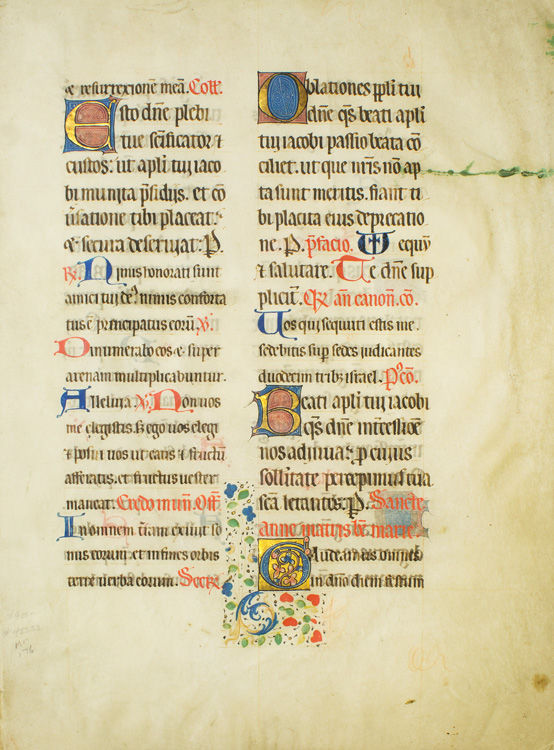 & resurrexionē meā. Coll.
Esto dñe plebi
tue sc̄ificator ⁊
custos: ut apl̄i tui iaco
bi munita p̄sidijs. et cō
uersatione tibi placeat:
& secura deseruiat. P.
Nimis honorati sunt
amici tui de⁹ nimis conforta
tus ē principatus eorū ꝟ.
Dinumerabo eos & super
arenam multiplicabuntur.
Alleluia ꝟ. Non uos
me elegistis s; ego uos elegi
& posui uos ut eatis & fructū
afferatis. et fructus uester
maneat. Credo in un. Off.
In omnem t̄ram exiuit so
nus eorum et in fines orbis
terre uerba eorum. Secr.
Oblationes ppl̄i tui
dñe q̄s beati apl̄i
tui iacobi passio beata cō
ciliet. ut que nr̄is nō ap
ta sunt meritis. fiant ti
bi placita eius deprecatio
ne. P. p̄facio. equū
⁊ salutare. Te dñe sup
pliciť.
Uos qui secuti estis me.
sedebitis sup sedes iudicantes
duodecim trib; israel. Pᵒcō.
Beati apl̄i tui iacobi
q̄s dñe int̄cessiōe
nos adiuua: p cuius
sollñitate percepimus tua
sc̄a letantes: P. Sancte
Anne matris bē marie.
Gaudeamus omnes
in dño diem festum